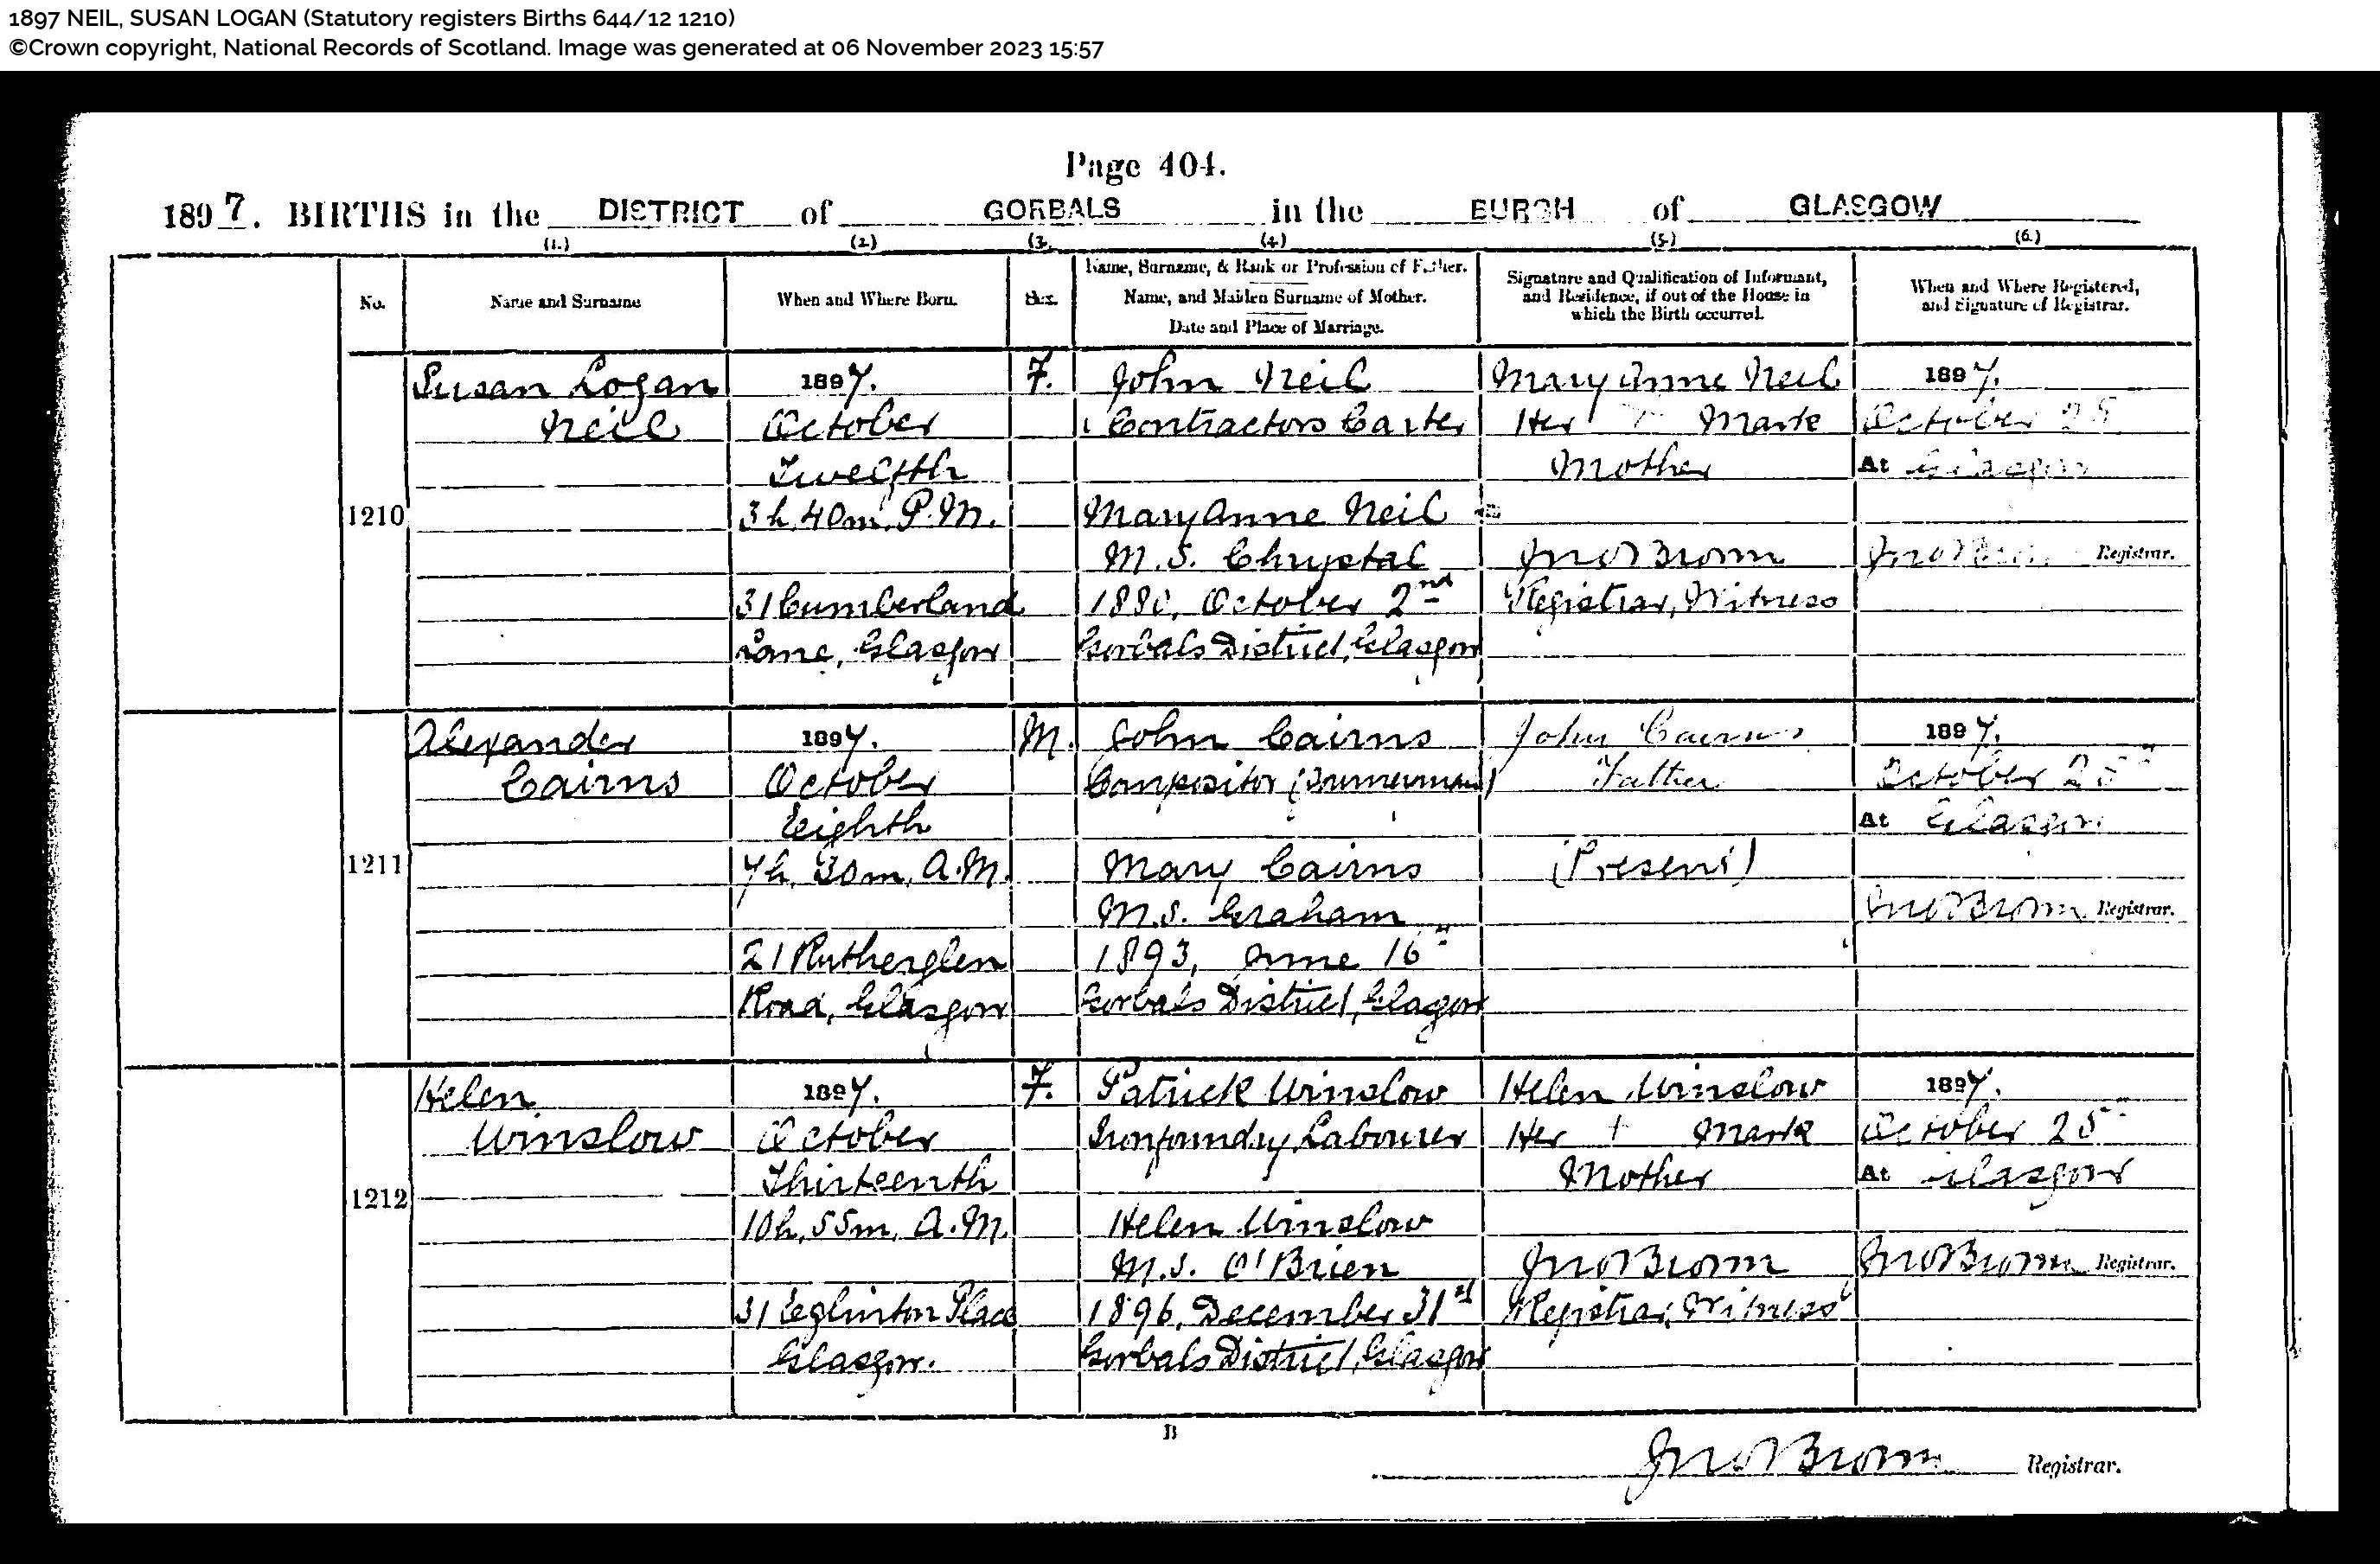 1897 NEIL, SUSAN LOGAN (Statutory registers Births 644/12 1210)
©Crown copyright, National Records of Scotland. Image was generated at 06 November 2023 15:57
Page 404.
1897. BIRTHS in the DISTRICT of GORBALS in the BURGH of GLASGOW
(1.) (2.) (3. (4.) (5.) (6.)
No.
Name and Surname
When and Where Born.
Sex.
Name, Surname, & Rank or Profession of Father.
Name, and Maiden Surname of Mother.
Date and Place of Marriage.
Signature and Qualification of Informant,
and Residence, if out of the House in
which the Birth occurred.
When and Where Registered,
and Signature of Registrar.
1210
Susan Logan
Neil
1897.
October
Twelfth
3h, 40m, P.M.
31 Cumberland
Lane, Glasgow
F.
John Neil
Contractors Carter
Mary Anne Neil
M.S. Chrystal
1880, October 2nd
Gorbals District, Glasgow
Mary Anne Neil
Her + Mark
Mother
Jno Brown
Registrar, Witness
1897.
October 25
At Glasgow
Jno Brown Registrar.
1211
Alexander
Cairns
1897.
October
Eighth
7h, 30m, A.M.
21 Rutherglen
Road, Glasgow
M.
John Cairns
Compositor (Journeyman)
Mary Cairns
M.S. Graham
1893, June 16"
Gorbals District, Glagow
John Cairns
Father
(Present)
1897.
October 25"
At Glasgow
Jno Brown Registrar.
1212
Helen
Winslow
1897.
October
Thirteenth
10h, 55m, A.M.
31 Eglinton Place
Glasgow.
F.
Patrick Winslow
Ironfoundry Labourer
Helen Winslow
M.S. O'Brien
1896, December 31st
Gorbals District, Glasgow
Helen Winslow
Her + Mark
Mother
Jno Brown
Registrar, Witness
1897.
October 25"
At Glasgow
Jno Brown Registrar.
B
Jno Brown Registrar.